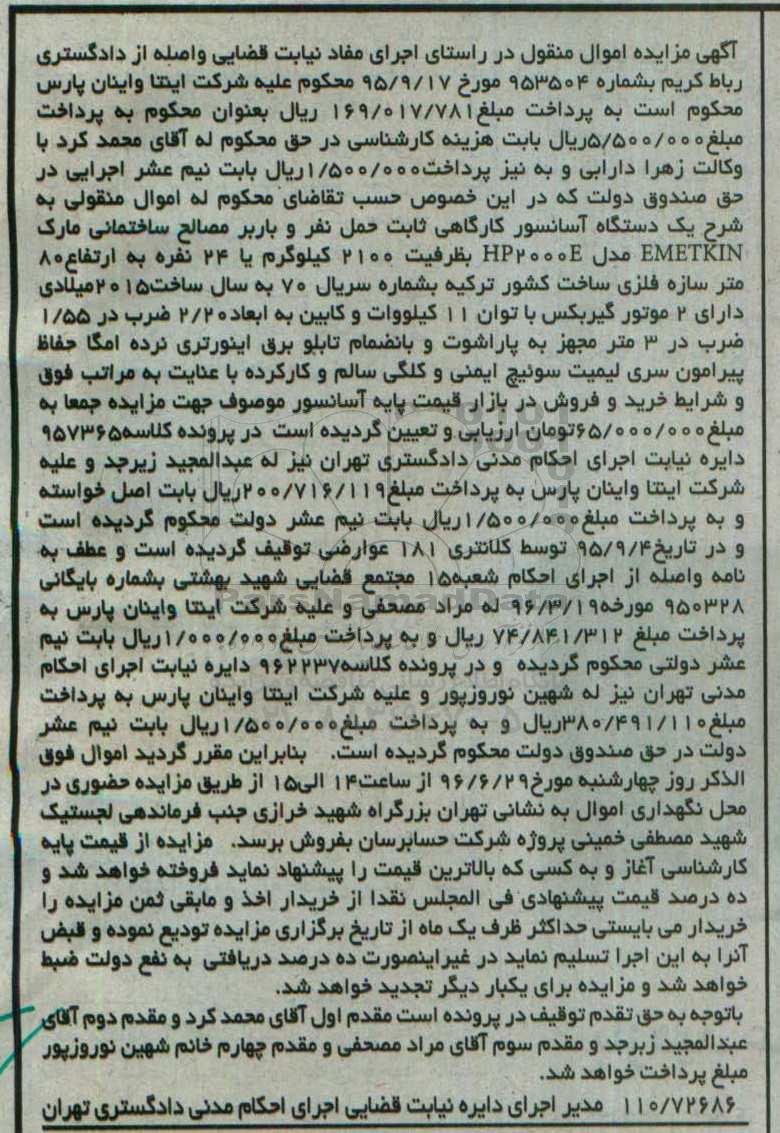 آگهی مزایده اموال منقول در راستای اجرای مفاد نیابت قضایی واصله از دادگستری
رباط کریم بشماره ۹۵۳۵۰۴ مورخ ۹۵/۹/۱۷ محکوم علیه شرکت اینتا واینان پارس
محکوم است به پرداخت مبلغ۱۶۹/۰۱۷/۷۸۱ ریال بعنوان محکوم به پرداخت
مبلغ۵/۵۰۰/۰۰۰ریال بابت هزینه کارشناسی در حق محکوم له آقای محمد کرد با
وکالت زهرا دارابی و به نیز پرداخت۱/۵۰۰/۰۰۰ریال بابت نیم عشر اجرایی در
حق صندوق دولت که در این خصوص حسب تقاضای محکوم له اموال منقولی به
شرح یک دستگاه آسانسور کارگاهی ثابت حمل نفر و باربر مصالح ساختمانی مارک
EMETKIN مدل HP۲۰۰۰E بظرفیت ۲۱۰۰ کیلوگرم یا ۲۴ نفره به ارتفاع۸۰
متر سازه فلزی ساخت کشور ترکیه بشماره سریال ۷۰ به سال ساخت۲۰۱۵میلادی
دارای ۲ موتور گیربکس با توان ۱۱ کیلووات و کابین به ابعاد۲/۲۰ ضرب در ۱/۵۵
ضرب در ۳ متر مجهز به پاراشوت و بانضمام تابلو برق اینورتری نرده امگا حفاظ
پیرامون سری لیمیت سوئیچ ایمنی و کلگی سالم و کارکرده با عنایت به مراتب فوق
و شرایط خرید و فروش در بازار قیمت پایه آسانسور موصوف جهت مزایده جمعا به
مبلغ۶۵/۰۰۰/۰۰۰تومان ارزیابی و تعیین گردیده است در پرونده کلاسه۹۵۷۳۶۵
دایره نیابت اجرای احکام مدنی دادگستری تهران نیز له عبدالمجید زیرجد و علیه
شرکت اینتا واینان پارس به پرداخت مبلغ۲۰۰/۷۱۶/۱۱۹ریال بابت اصل خواسته
و به پرداخت مبلغ۱/۵۰۰/۰۰۰ریال بابت نیم عشر دولت محکوم گردیده است
و در تاریخ۹۵/۹/۴ توسط کلانتری ۱۸۱ عوارضی توقیف گردیده است و عطف به
نامه واصله از اجرای احکام شعبه۱۵ مجتمع قضایی شهید بهشتی بشماره بایگانی
۹۵۰۳۲۸ مورخه۹۶/۳/۱۹ له مراد مصحفی و علیه شرکت اینتا واینان پارس به
پرداخت مبلغ ۷۴/۸۴۱/۳۱۲ ریال و به پرداخت مبلغ۱/۰۰۰/۰۰۰ریال بابت نیم
عشر دولتی محکوم گردیده و در پرونده کلاسه۹۶۲۲۳۷ دایره نیابت اجرای احکام
مدنی تهران نیز له شهین نوروزپور و علیه شرکت اینتا واینان پارس به پرداخت
مبلغ۳۸۰/۴۹۱/۱۱۰ریال و به پرداخت مبلغ۱/۵۰۰/۰۰۰ریال بابت نیم عشر
دولت در حق صندوق دولت محکوم گردیده است. بنابراین مقرر گردید اموال فوق
الذکر روز چهارشنبه مورخ۹۶/۶/۲۹ از ساعت۱۴ الی۱۵ از طریق مزایده حضوری در
محل نگهداری اموال به نشانی تهران بزرگراه شهید خرازی جنب فرماندهی لجستیک
شهید مصطفی خمینی پروژه شرکت حسابرسان بفروش برسد. مزایده از قیمت پایه
کارشناسی آغاز و به کسی که بالاترین قیمت را پیشنهاد نماید فروخته خواهد شد و
ده درصد قیمت پیشنهادی فی المجلس نقدا از خریدار اخذ و مابقی ثمن مزایده را
خریدار می بایستی حداکثر ظرف یک ماه از تاریخ برگزاری مزایده تودیع نموده و قبض
آنرا به این اجرا تسلیم نماید در غیراینصورت ده درصد دریافتی به نفع دولت ضبط
خواهد شد و مزایده برای یکبار دیگر تجدید خواهد شد.
باتوجه به حق تقدم توقیف در پرونده است مقدم اول آقای محمد کرد و مقدم دوم آقای
عبدالمجید زبرجد و مقدم سوم آقای مراد مصحفی و مقدم چهارم خانم شهین نوروزپور
مبلغ پرداخت خواهد شد.
۱۱۰/۷۲۶۸۶ مدیر اجرای دایره نیابت قضایی اجرای احکام مدنی دادگستری تهران